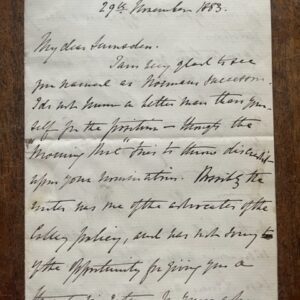 29th November 1883.
My dear Lumsden.
I am very glad to see
you named as Normans successor.
I do not know a better man than your-
self for the position - though the
"Morning Post" tries to throw discredit
upon your nomination. Possibly the
writer was one of the advocates of the
policy, and was not sorry
of the opportunity for giving you a